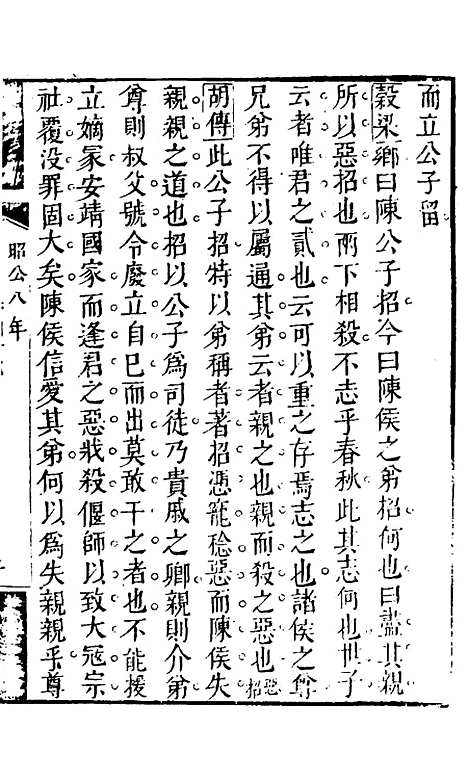 而立公子留
穀梁鄉曰陳公子招今曰陳侯之弟招何也曰盡其親
所以惡招也兩下相殺不志乎春秋此其志何也世子
云者唯君之貳也云可以重之存焉志之也諸侯之尊
兄弟不得以屬通其弟云者親之也親而殺之惡也惡招
胡傳此公子招特以弟稱者著招憑寵稔惡而陳侯失
親親之道也招以公子為司徒乃貴戚之卿親則介弟
尊則叔父號令廢立自巳而出莫敢干之者也不能援
立嫡冡安靖國家而逢君之惡戕殺偃師以致大宼宗
社覆没罪固大矣陳侯信愛其弟何以為失親親乎尊
昭公八年